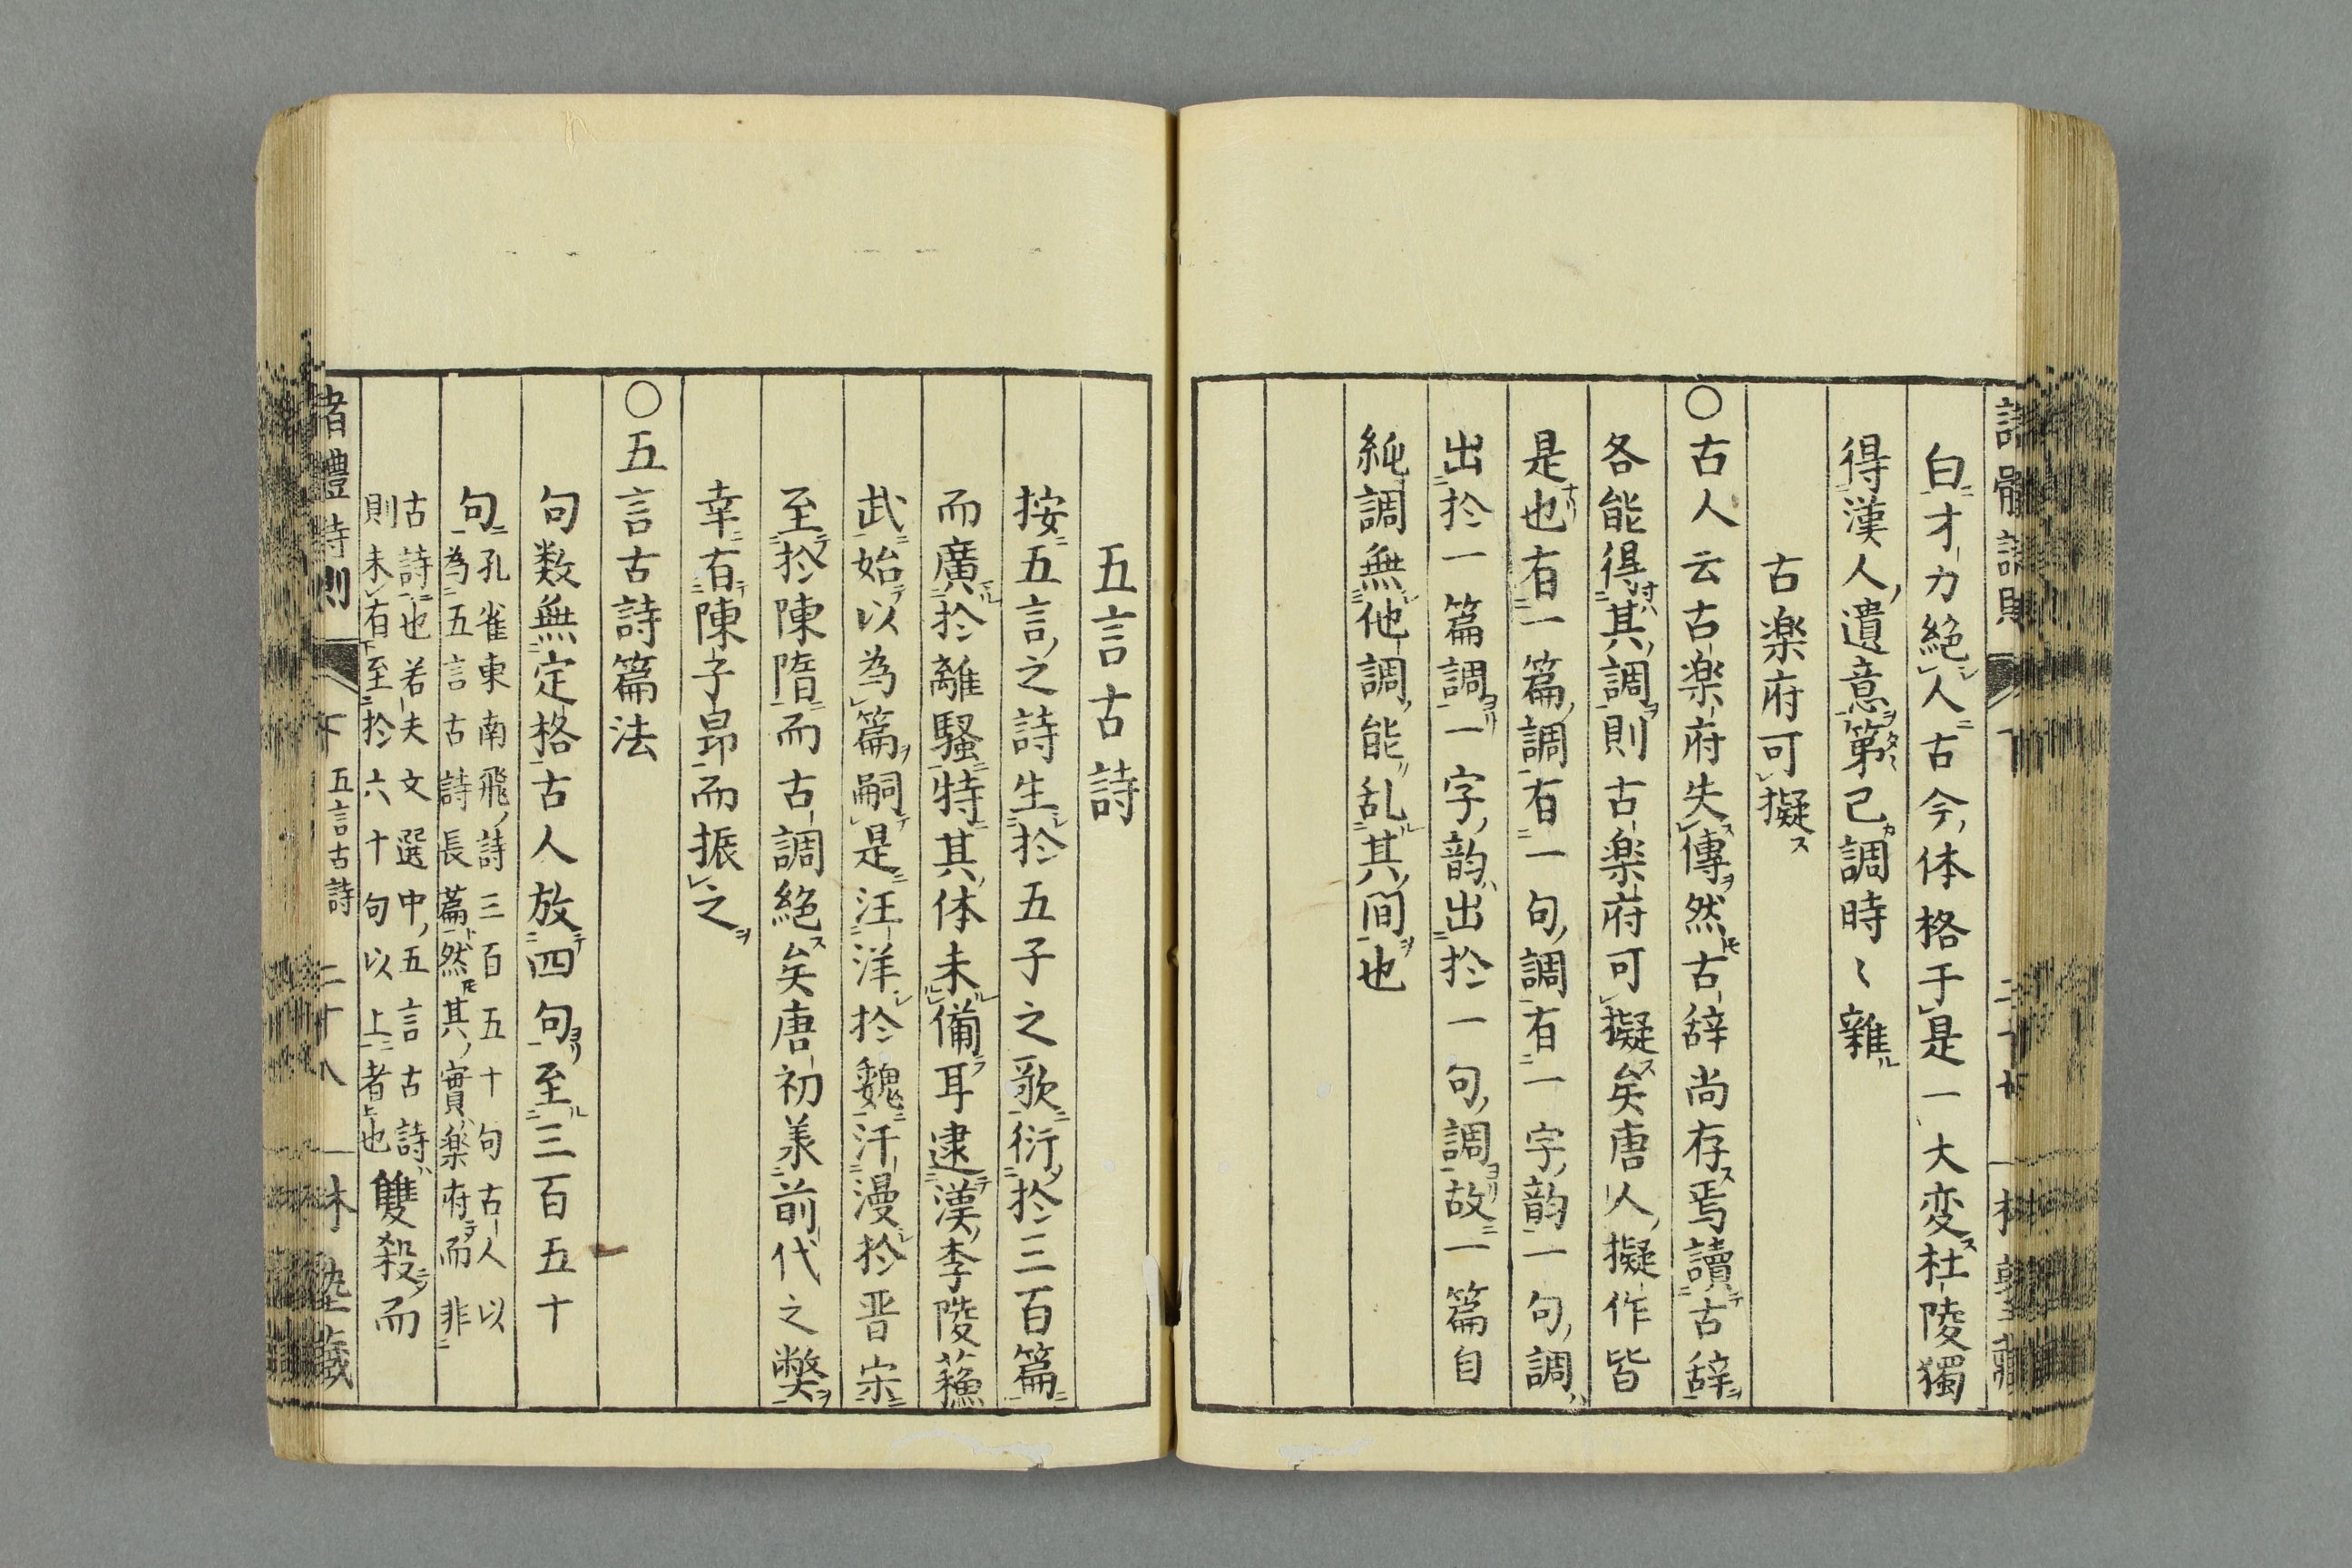 白才力絶人古今体格于是一大変杜陵獨
得漢人遺意第己調時〻雜
古楽府可擬
○古人云古楽府失傳然古辞尚存焉讀古辞
各能得其調則古楽府可擬矣唐人擬作皆
是也有一篇調有一句調有一字韵一句調
出於一篇調一字韵出於一句調故一篇自
純調無他調能乱其間也
五言古詩
按五言之詩生於五子之歌衍於三百篇
而廣於離騷特其体未備耳逮漢李陵蘓
武始以為篇嗣是汪洋於魏汗漫於晋宋
至於陳隋而古調絶矣唐初羕前代之獘
幸有陳子昻而振之
○五言古詩篇法
句数無定格古人放四句至三百五十
句
孔雀東南飛詩三百五十句古人以
為五言古詩長篇然其實楽府而非
古詩也若夫文選中五言古詩
則未有至於六十句以上者也
雙殺而
五言古詩
二十八